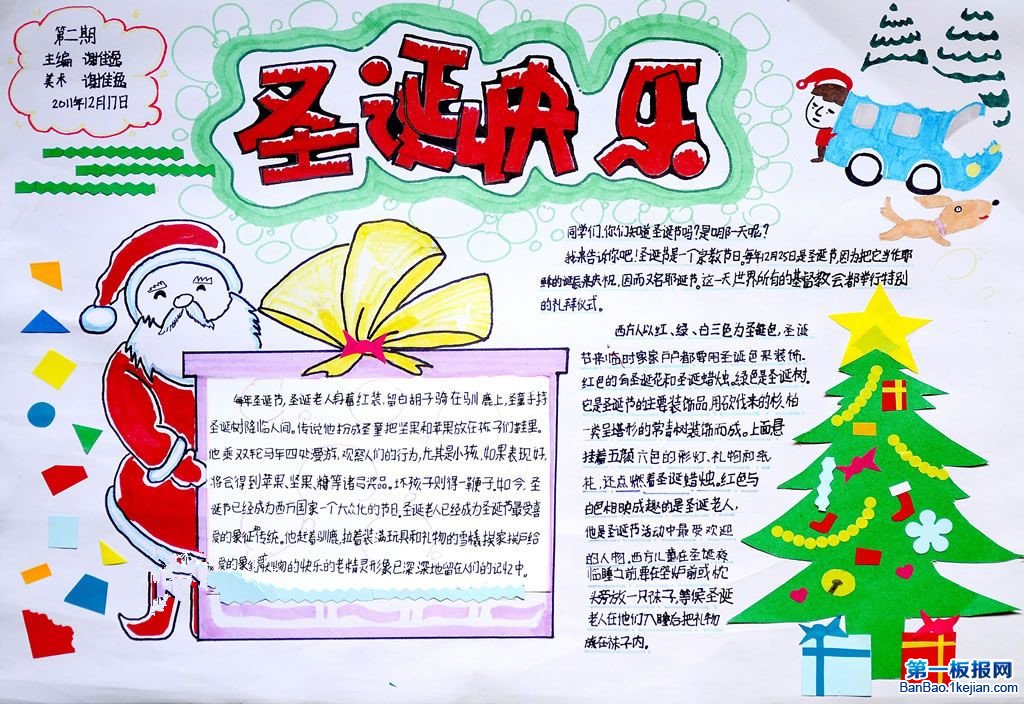 第二期
主编 谢佳逸
美术 谢佳逸
2011年12月17日
圣诞快乐
同学们,你们知道圣诞节吗?是哪一天呢?
我来告诉你吧!圣诞节是一个宗教节日,每年12月25日是圣诞节,因为把它当作耶
稣的诞辰来庆祝,因而又名耶诞节。这一天世界所有的基督教会都举行特别
的礼拜仪式。
西方人以红、绿、白三色为圣诞色,圣诞
节来临时家家户户都要用圣诞色来装饰。
红色的有圣诞花和圣诞蜡烛。绿色是圣诞树。
它是圣诞节的主要装饰品,用砍伐来的杉、柏
一类呈塔形的常青树装饰而成。上面悬
挂着五颜六色的彩灯、礼物和纸
花,还点燃着圣诞蜡烛。红色与
白色相映成趣的是圣诞老人,
他是圣诞节活动中最受欢迎
的人物。西方儿童在圣诞夜
临睡之前,要在壁炉前或枕
头旁放一只袜子,等候圣诞
老人在他们入睡后把礼物
放在袜子内。
每年圣诞节,圣诞老人身着红装,留白胡子骑在驯鹿上,圣童手持
圣诞树降临人间。传说他扮成圣童把坚果和苹果放在孩子们鞋里。
他乘双轮马车四处漫游,观察人们的行为,尤其是小孩,如果表现好,
将会得到苹果、坚果、糖等诸多奖品。坏孩子则得一鞭子。如今,圣
诞节已经成为西方国家一个大众化的节日,圣诞老人已经成为圣诞节最受喜
爱的象征和传统。他赶着驯鹿,拉着装满玩具和礼物的雪橇挨家挨户给
物的快乐的老精灵形象已深深地留在人们的记忆中。
第一板报网
BanBao.1kejian.com